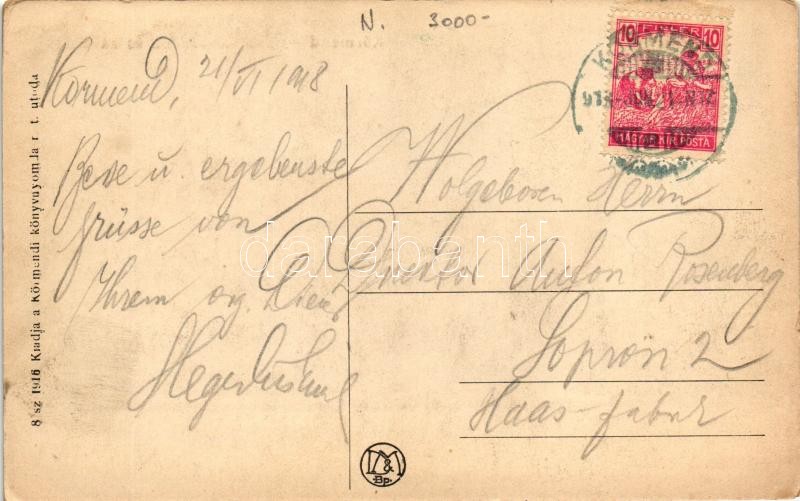 N. 3000-
10 FILLÉR 10
MAGYAR KIR. POSTA
KÖRMEND
Kormend, 21/VI 1918
Beste u. ergebenste
grüsse von
Ihrem erg.
Hegedüs
Wolgeboren Herrn
Direktor Anton Rosenberg
Sopron 2
Haas-fabrik
8 sz 1916 Kiadja a Körmendi könyvnyomda r. t. utóda
D&M
Bp.
darabanth